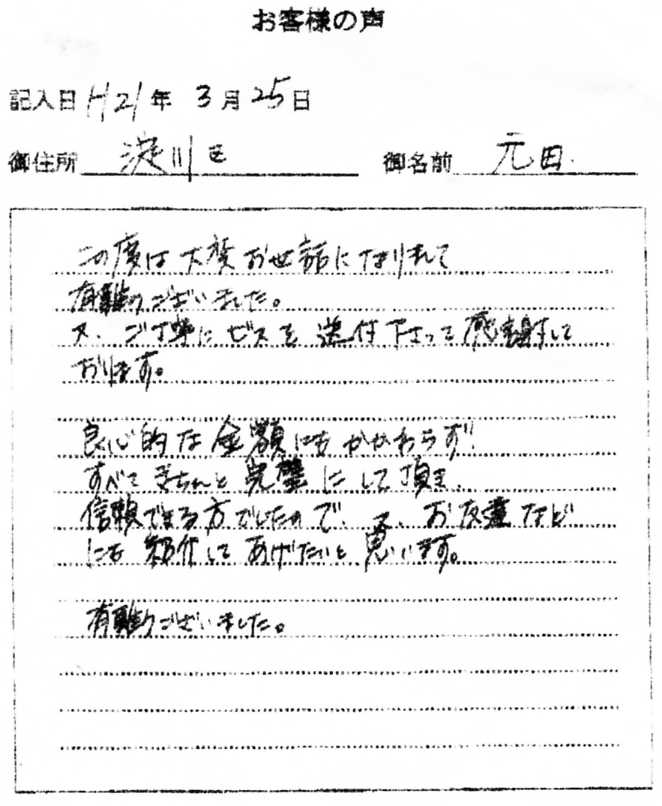 お客様の声
記入日 H21年 3月25日
御住所 淀川区 御名前 元田.
この度は大変お世話になりまして
有難うございました。
又、ご丁寧にビスを送付下さって感謝して
おります。
良心的な金額にもかかわらず!
すべてきちんと完璧にして頂き、
信頼できる方でしたので、又、お友達など
にも紹介してあげたいと思います。
有難うございました。